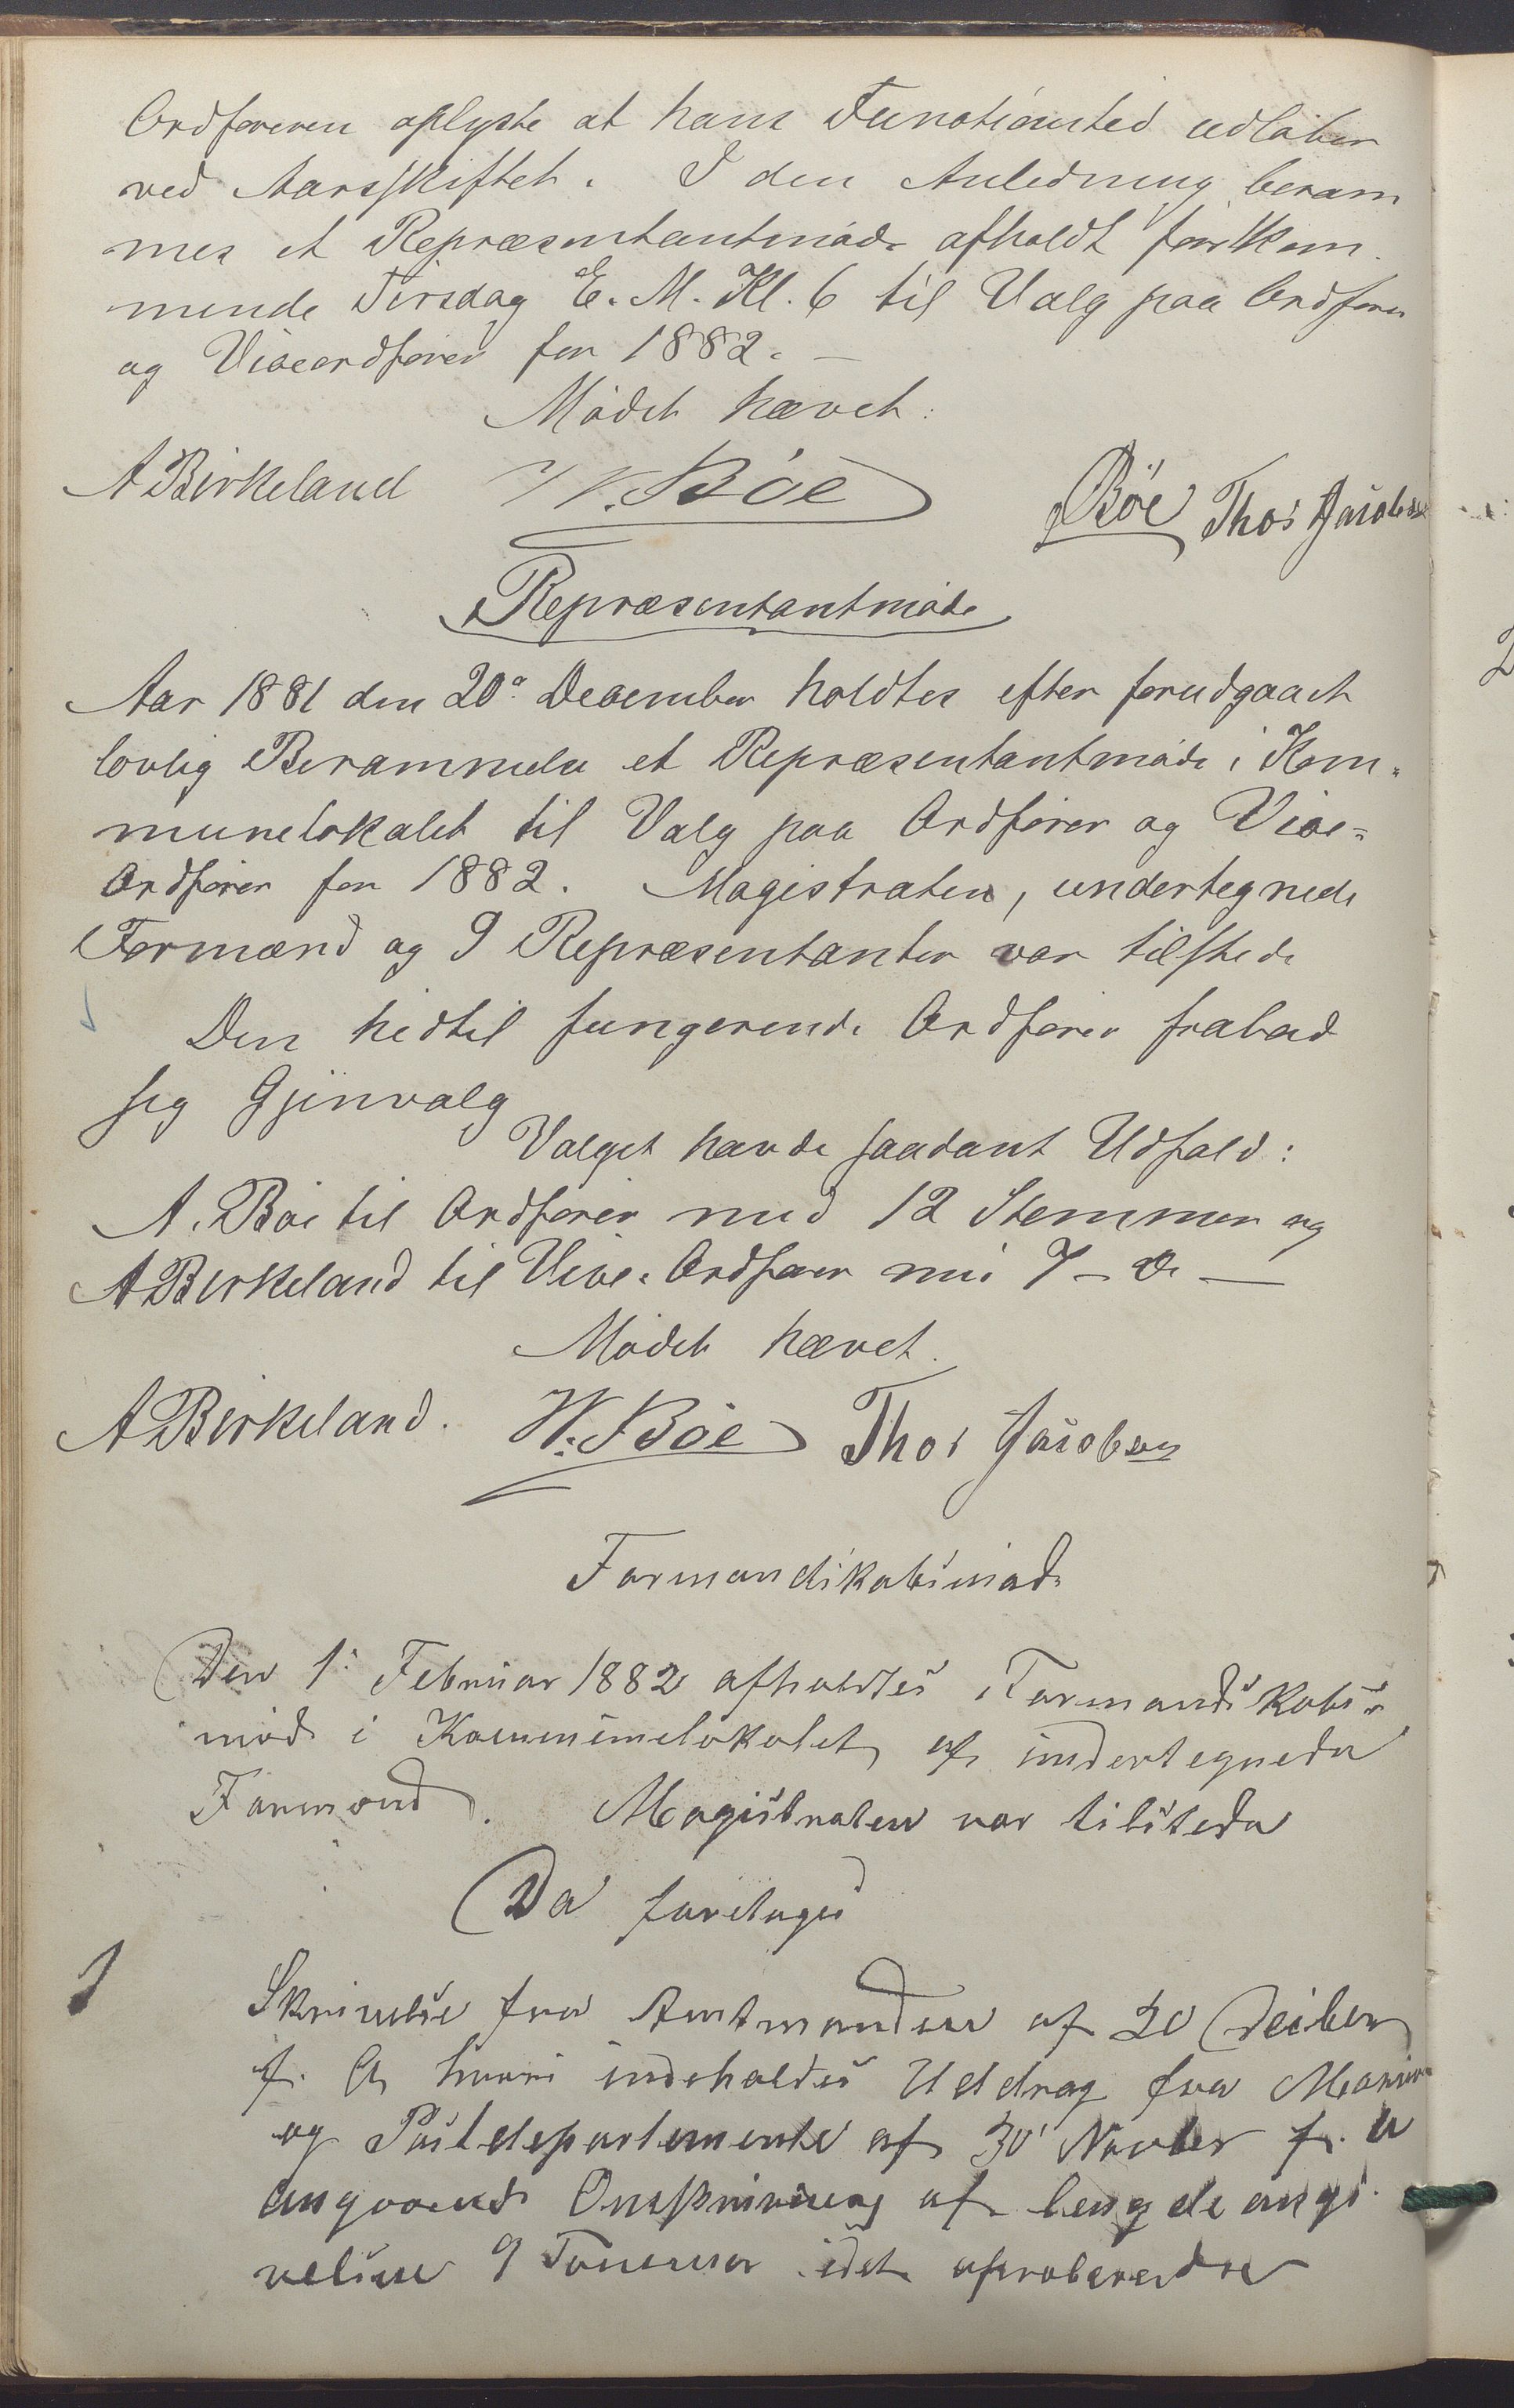 Ordføreren oplyste at hans Functionstid udløber
ved Aarsskiftet. I den Anledning beram
mes et Repræsentantmøde afholdt førstkom
mende Tirsdag E. M. Kl. 6 til Valg paa Ordfører
og Viceordfører for 1882. —
Mødet hævet:
A Birkeland W. Bøe Bøe Thos Jacobsen
Repræsentantmøde
Aar 1881 den 20de December holdtes efter forudgaaet
lovlig Berammelse et Repræsentantmøde i Kom=
munelokalet til Valg paa Ordfører og Vice=
Ordfører for 1882. Magistraten, undertegnede
Formænd og 9 Repræsentanter var tilstede
Den hidtil fungerende Ordfører frabad
sig Gjenvalg
Valget havde saadant Udfald:
A. Bøe til Ordfører med 12 Stemmer og
A Birkeland til Vice-Ordfører med 7 — do —
Mødet hævet.
A Birkeland. W. Bøe Thos Jacobsen
Formandskabsmøde
Den 1. Februar 1882 afholdtes Formandskabs=
møde i Kommunelokalet af undertegnede
Formænd. Magistraten var tilstede
Da foretoges
1 Skrivelse fra Amtmanden af 20 Deciber
f. A hvori indeholdes Uddrag fra Marine
og Postdepartementet af 30 Novber f. A
angaaende Omskrivning af
9 Tommer